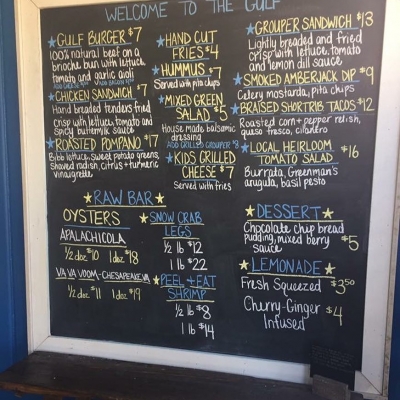 WELCOME TO THE GULF
GULF BURGER $7
100% natural beef on a
brioche bun with lettuce,
tomato and garlic aioli
CHICKEN SANDWICH $7
Hand breaded tenders fried
Crisp with lettuce, tomato and
spicy buttermilk sauce
ROASTED POMPANO $17
Bibb lettuce, sweet potato greens,
shaved radish, citrus + turmeric
vinaigrette
HAND CUT
FRIES $4
HUMMUS $7
Served with pita chips
MIXED GREEN
SALAD $5
House made balsamic
dressing
ADD GRILLED GROUPER $8
KIDS GRILLED
CHEESE $7
Served with fries
GROUPER SANDWICH $13
Lightly breaded and fried
crisp with lettuce, tomato
and lemon dill sauce
SMOKED AMBERJACK DIP $9
Celery mostarda, pita chips
BRAISED SHORTRIB TACOS $12
Roasted corn + pepper relish,
queso fresco, cilantro
LOCAL HEIRLOOM
TOMATO SALAD $16
Burrata, Greenman's
arugula, basil pesto
RAW BAR
OYSTERS
APALACHICOLA
1/2 doz $10 1 doz $18
VA VA VOOM - CHESAPEAKE, VA
1/2 doz $11 1 doz $19
SNOW CRAB
LEGS
1/2 lb $12
1 lb $22
PEEL + EAT
SHRIMP
1/2 lb $8
1 lb $14
DESSERT
Chocolate chip bread
pudding, mixed berry
sauce $5
LEMONADE
Fresh Squeezed $3.50
Cherry-Ginger
Infused $4